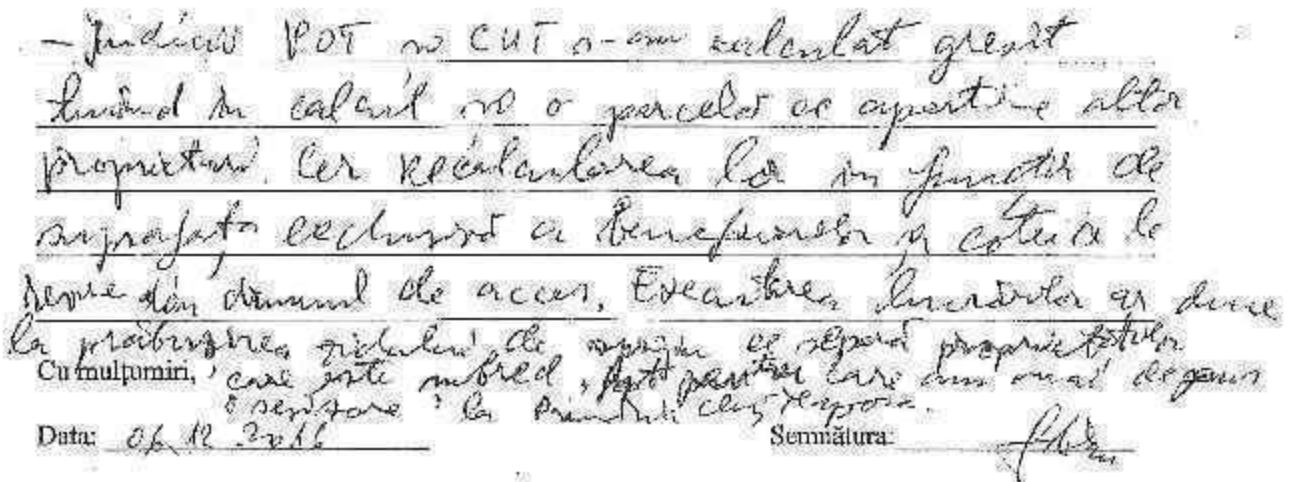 - Indicii POT și CUT s-au calculat greșit
luând în calcul și o parcelă ce aparține altor
proprietari. Cer recalcularea lor în funcție de
suprafața exclusivă a beneficiarilor și cotei de
din drumul de acces. Executarea lucrărilor ar duce
la prăbușirea zidului de sprijin ce separă proprietățile
Cu mulțumiri, care este șubred, fapt pentru care am mai depus
o sesizare la Primăria Cluj Napoca.
Data: 06.12.2016 Semnătura: